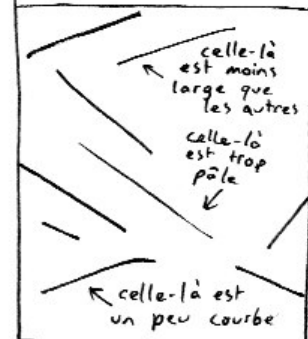 celle-là
est moins
large que
les autres
celle-là
est trop
pâle
celle-là est
un peu courbe